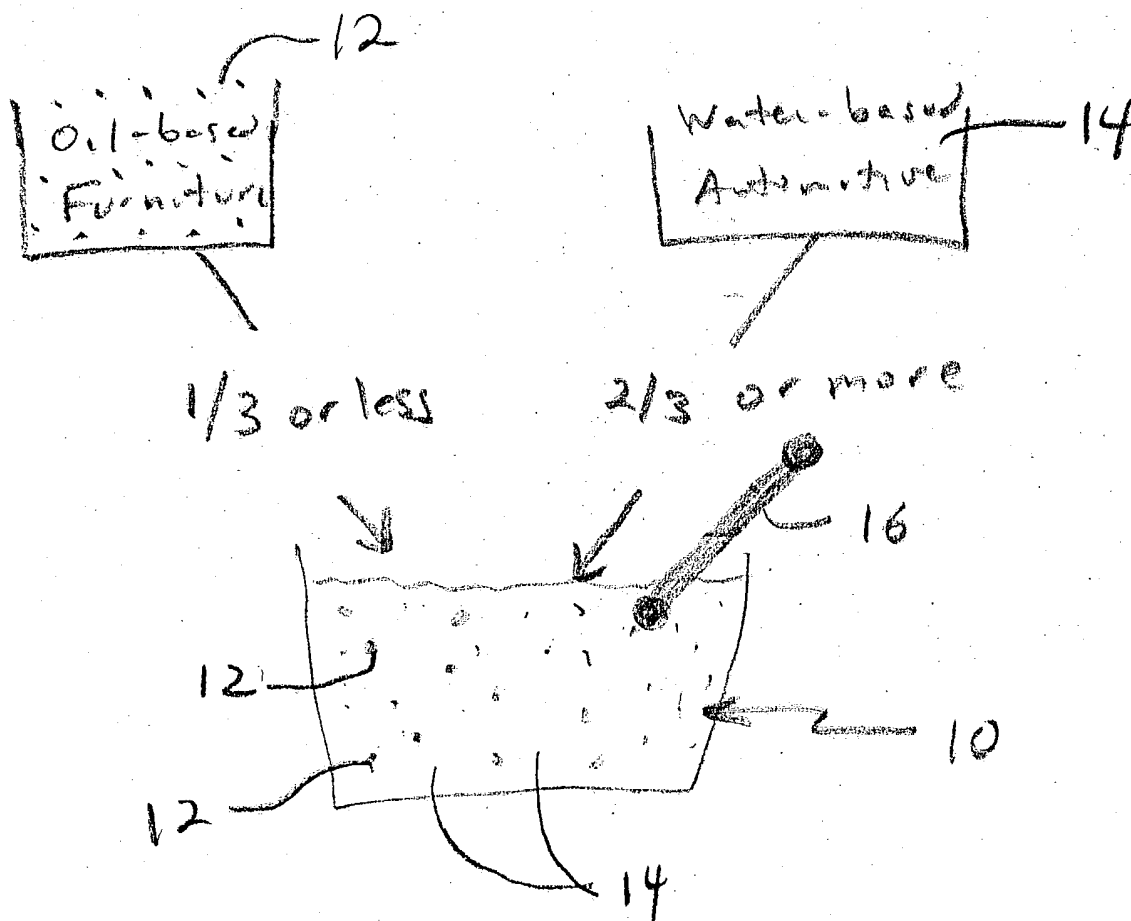 12
Oil-based
Furniture
Water-based
Automotive
14
1/3 or less
2/3 or more
16
12
10
12
14